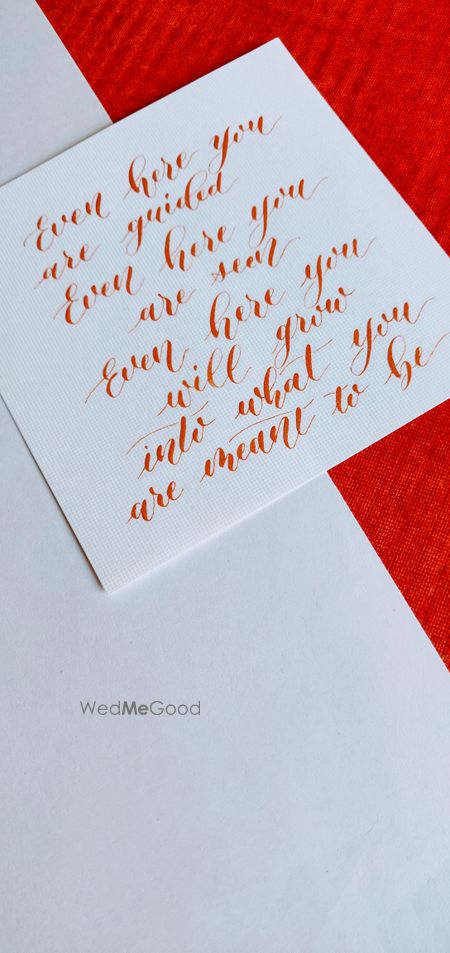 Even here you
are guided
Even here you
are seen
Even here you
will grow
into what you
are meant to be
WedMeGood